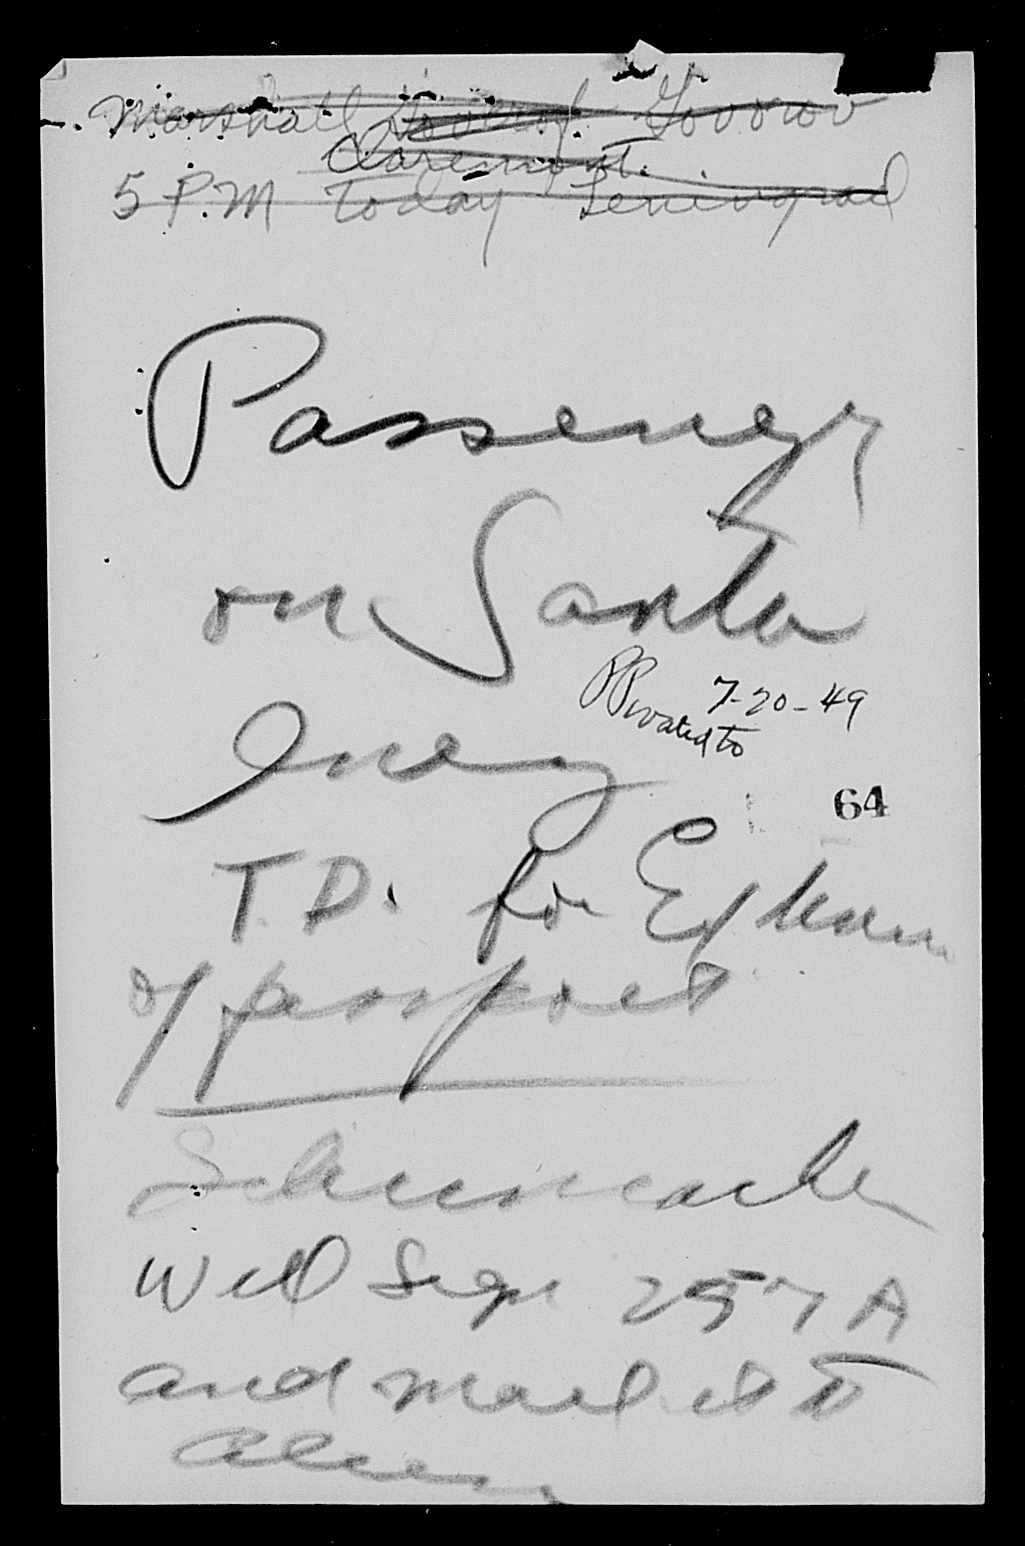 Marshall Govorov
Claremont.
5 P.M Today Leningrad
Passenger
on Santa
Inez
7-20-49
to
64
T.D. for Exten
of passport
Schumacher
Will Sign 257A
and mail it to
Alien